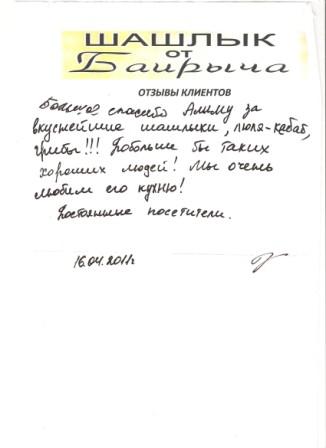 ШАШЛЫК
ОТ
Байрыча
ОТЗЫВЫ КЛИЕНТОВ
Большое спасибо Алиму за
вкуснейшие шашлыки, люля-кебаб,
грибы!!! Побольше бы таких
хороших людей! Мы очень
любим его кухню!
Постоянные посетители.
16.04.2011г